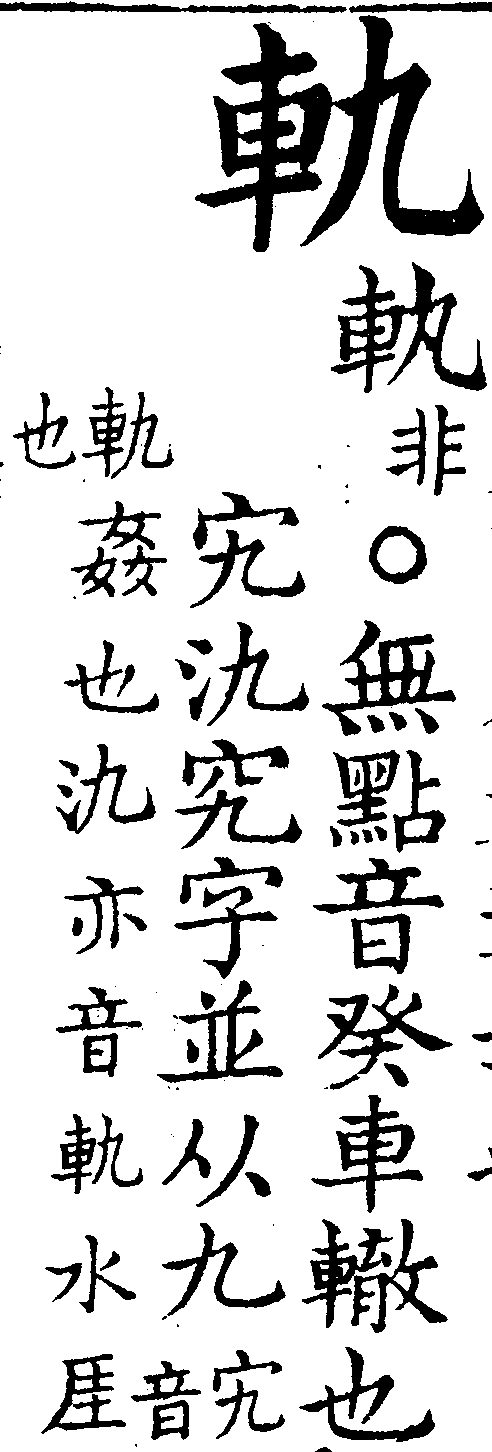 軌
非○無點音癸車轍也
宄氿究字並从九宄音
軌姦也氿亦音軌水厓
也